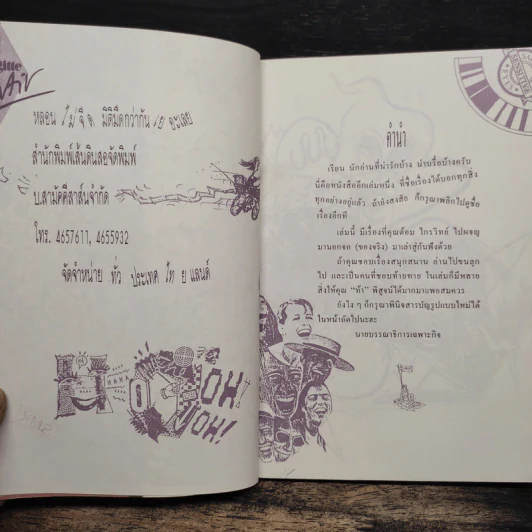 หลอน ไม่จืด มิติมืดกว่ากันเยอะเลย
สำนักพิมพ์เส้นดินสอจัดพิมพ์
บ.สามัคคีสาส์นจำกัด
โทร. 4657611, 4655932
จัดจำหน่าย ทั่ว ประเทศ ไท ย แลนด์
HAHA
OH!
YOH!
คำนำ
เรียน นักอ่านที่น่ารักบ้าง น่าเบื่อบ้างครับ
นี่คือหนังสืออีกเล่มหนึ่ง ที่ชื่อเรื่องได้บอกทุกสิ่ง
ทุกอย่างอยู่แล้ว ถ้ายังสงสัย ก็กรุณาพลิกไปดูชื่อ
เรื่องอีกที
เล่มนี้ มีเรื่องที่คุณต้อม ไกรวิทย์ ไปผจญ
มานอกจอ (ของจริง) มาเล่าสู่กันฟังด้วย
ถ้าคุณชอบเรื่องสนุกสนาน อ่านไปขนลุก
ไป และเป็นคนที่ชอบท้าทาย ในเล่มก็มีหลาย
สิ่งให้คุณ "ท้า" พิสูจน์ได้มากมายพอสมควร
ยังไง ๆ ก็กรุณาพินิจสารบัญรูปแบบใหม่ได้
ในหน้าถัดไปนะฮะ
นายบรรณาธิการเฉพาะกิจ